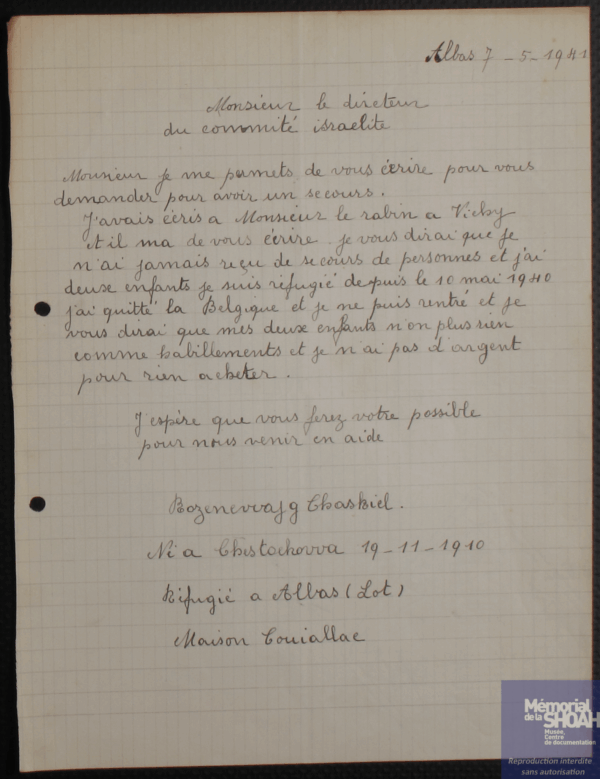 Albas 7 - 5 - 1941
Monsieur le directeur
du commité israelite
Monsieur je me permets de vous écrire pour vous
demander pour avoir un secours.
J'avais écris a Monsieur le rabin a Vichy
et il ma de vous écrire. je vous dirai que je
n'ai jamais reçu de secours de personnes et j'ai
deux enfants je suis réfugié depuis le 10 mai 1940
j'ai quitté la Belgique et je ne puis rentré et je
vous dirai que mes deux enfants n'on plus rien
comme habillements et je n'ai pas d'argent
pour rien acheter.
J'espère que vous ferez votre possible
pour nous venir en aide
Bozenewajg Chaskiel.
Né a Chestochowa 19-11-1910
Réfugié a Albas (Lot)
Maison Couiallac
Mémorial
de la SHOAH
Musée,
Centre
de documentation
Reproduction interdite
sans autorisation